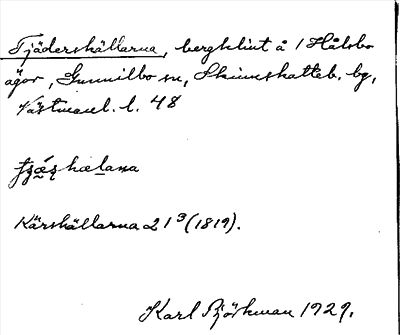 Tjädershällarna, bergklint å 1 Hålsbo
ägor, Gunnilbo sn, Skinnskatteb. bg,
Västmanl. l. 48
Kärshällarna 21³ (1819).
Karl Björkman 1929.